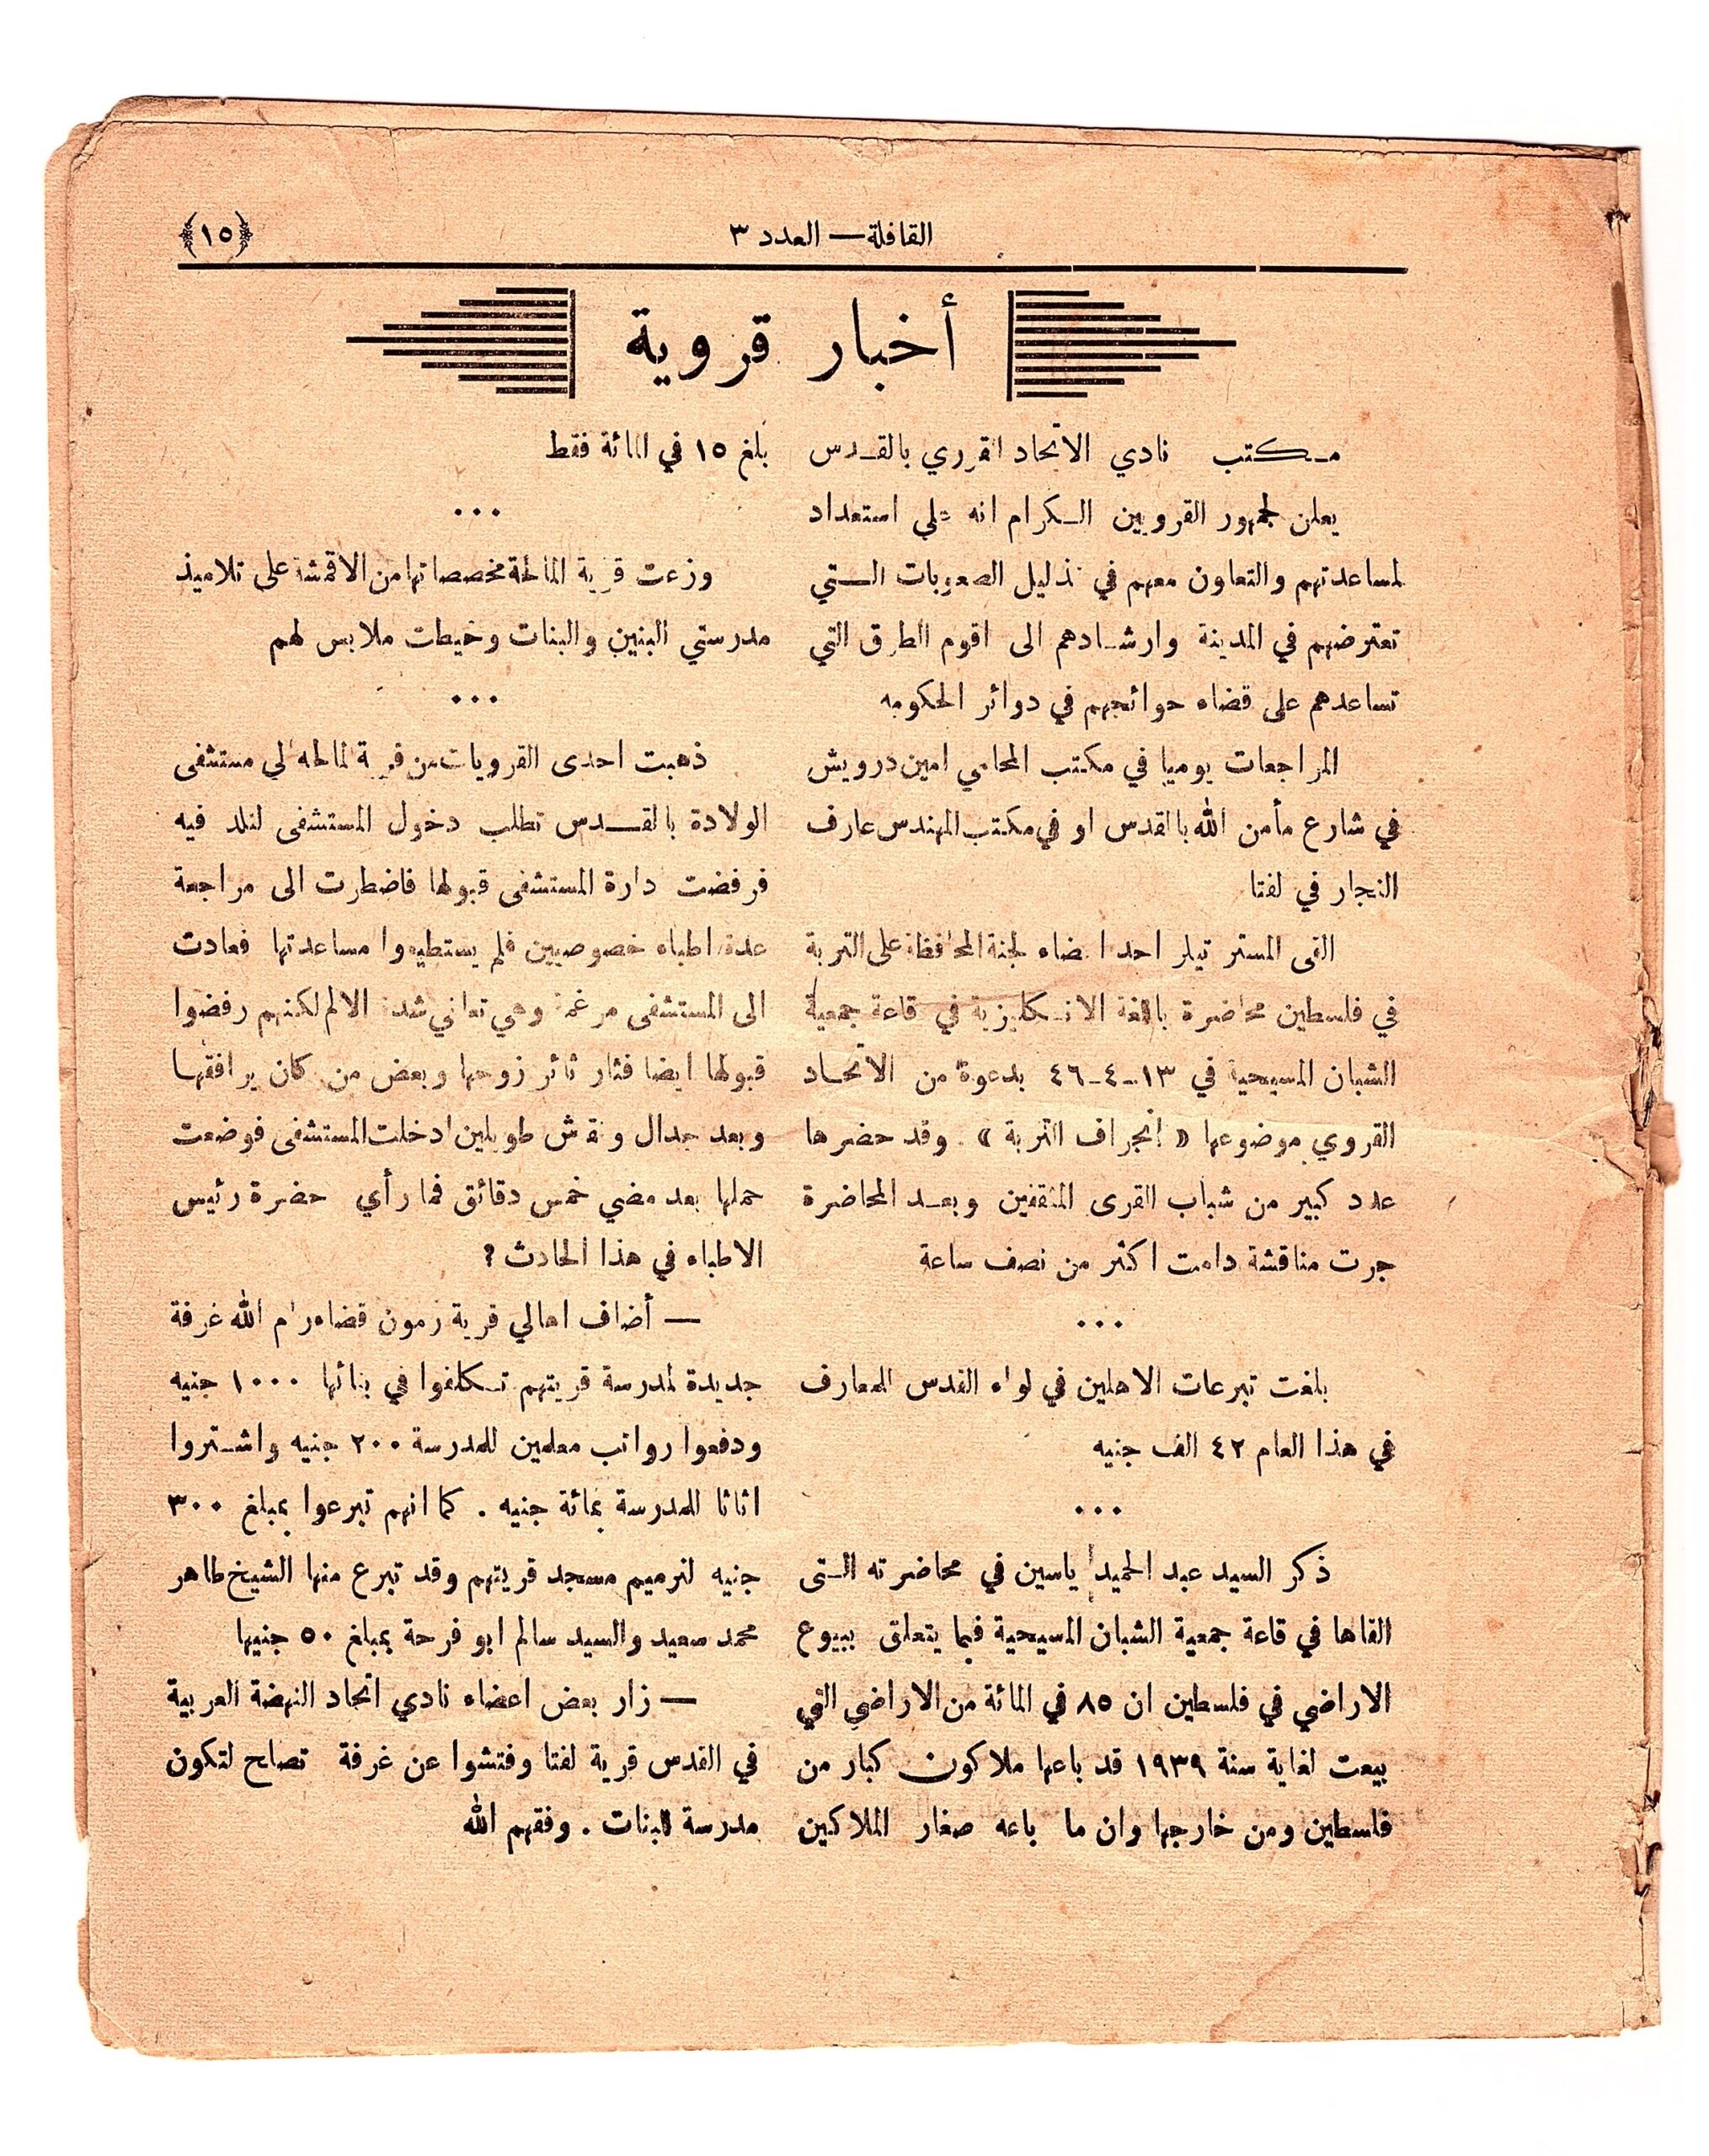 القافلة — العدد ٣
﴿١٥﴾
أخبار قروية
مكتب نادي الاتحاد القروي بالقدس
يعلن لجمهور القرويين الكرام انه على استعداد
لمساعدتهم والتعاون معهم في تذليل الصعوبات التي
تعترضهم في المدينة وارشادهم الى اقوم الطرق التي
تساعدهم على قضاء حوائجهم في دوائر الحكومه
المراجعات يوميا في مكتب المحامي امين درويش
في شارع مأمن الله بالقدس او في مكتب المهندس عارف
النجار في لفتا
القى المستر تيلر احد اعضاء لجنة المحافظة على التربة
في فلسطين محاضرة باللغة الانكليزية في قاعة جمعية
الشبان المسيحية في ١٣-٤-٤٦ بدعوة من الاتحاد
القروي موضوعها « انجراف التربة » وقد حضرها
عدد كبير من شباب القرى المثقفين وبعد المحاضرة
جرت مناقشة دامت اكثر من نصف ساعة
...
بلغت تبرعات الاهلين في لواء القدس للمعارف
في هذا العام ٤٢ الف جنيه
...
ذكر السيد عبد الحميد ياسين في محاضرته التى
القاها في قاعة جمعية الشبان المسيحية فيما يتعلق ببيوع
الاراضي في فلسطين ان ٨٥ في المائة من الاراضي التي
بيعت لغاية سنة ١٩٣٩ قد باعها ملاكون كبار من
فلسطين ومن خارجها وان ما باعه صغار الملاكين
بلغ ١٥ في المائة فقط
...
وزعت قرية المالحة مخصصاتها من الاقمشة على تلاميذ
مدرستي البنين والبنات وخيطت ملابس لهم
...
ذهبت احدى القرويات من قرية المالحه الي مستشفى
الولادة بالقدس تطلب دخول المستشفى لتلد فيه
فرفضت دارة المستشفى قبولها فاضطرت الى مراجعة
عدة اطباء خصوصيين فلم يستطيعوا مساعدتها فعادت
الى المستشفى مرغمة وهي تعاني شدة الالم لكنهم رفضوا
قبولها ايضا فثار ثائر زوجها وبعض من كان يرافقها
وبعد جدال ونقاش طويلين ادخلت المستشفى فوضعت
حملها بعد مضي خمس دقائق فما رأي حضرة رئيس
الاطباء في هذا الحادث ؟
— أضاف اهالي قرية رمون قضاء رام الله غرفة
جديدة لمدرسة قريتهم تكلفوا في بنائها ١٠٠٠ جنيه
ودفعوا رواتب معلمين للمدرسة ٢٠٠ جنيه واشتروا
اثاثا للمدرسة بمائة جنيه . كما انهم تبرعوا بمبلغ ٣٠٠
جنيه لترميم مسجد قريتهم وقد تبرع منها الشيخ طاهر
محمد سعيد والسيد سالم ابو فرحة بمبلغ ٥٠ جنيها
— زار بعض اعضاء نادي اتحاد النهضة العربية
في القدس قرية لفتا وفتشوا عن غرفة تصلح لتكون
مدرسة للبنات . وفقهم الله